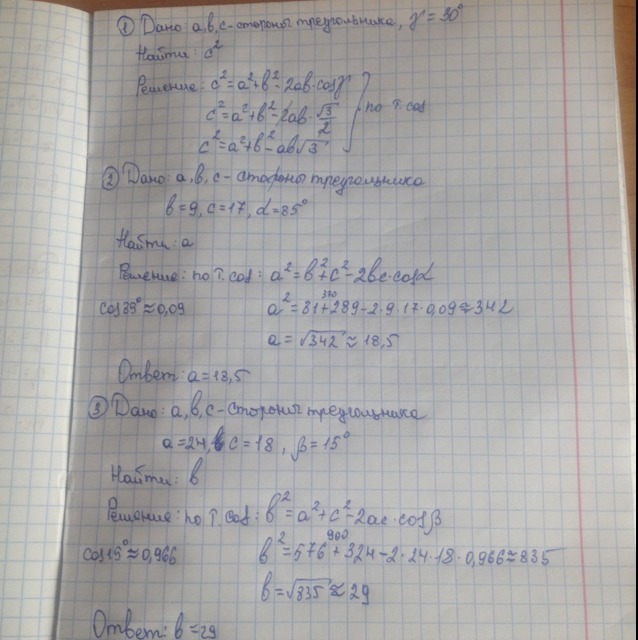 ① Дано: a, b, c - стороны треугольника, γ = 30°
Найти: c²
Решение: c² = a² + b² - 2ab · cos γ
c² = a² + b² - 2ab · √3/2 } по т. cos
c² = a² + b² - ab√3
② Дано: a, b, c - стороны треугольника
b = 9, c = 17, α = 85°
Найти: a
Решение: по т. cos: a² = b² + c² - 2bc · cos α
370
cos 85° ≈ 0,09 a² = 81 + 289 - 2 · 9 · 17 · 0,09 ≈ 342
a = √342 ≈ 18,5
Ответ: a = 18,5
③ Дано: a, b, c - стороны треугольника
a = 24, c = 18, β = 15°
Найти: b
Решение: по т. cos: b² = a² + c² - 2ac · cos β
900
cos 15° ≈ 0,966 b² = 576 + 324 - 2 · 24 · 18 · 0,966 ≈ 835
b = √835 ≈ 29
Ответ: b = 29